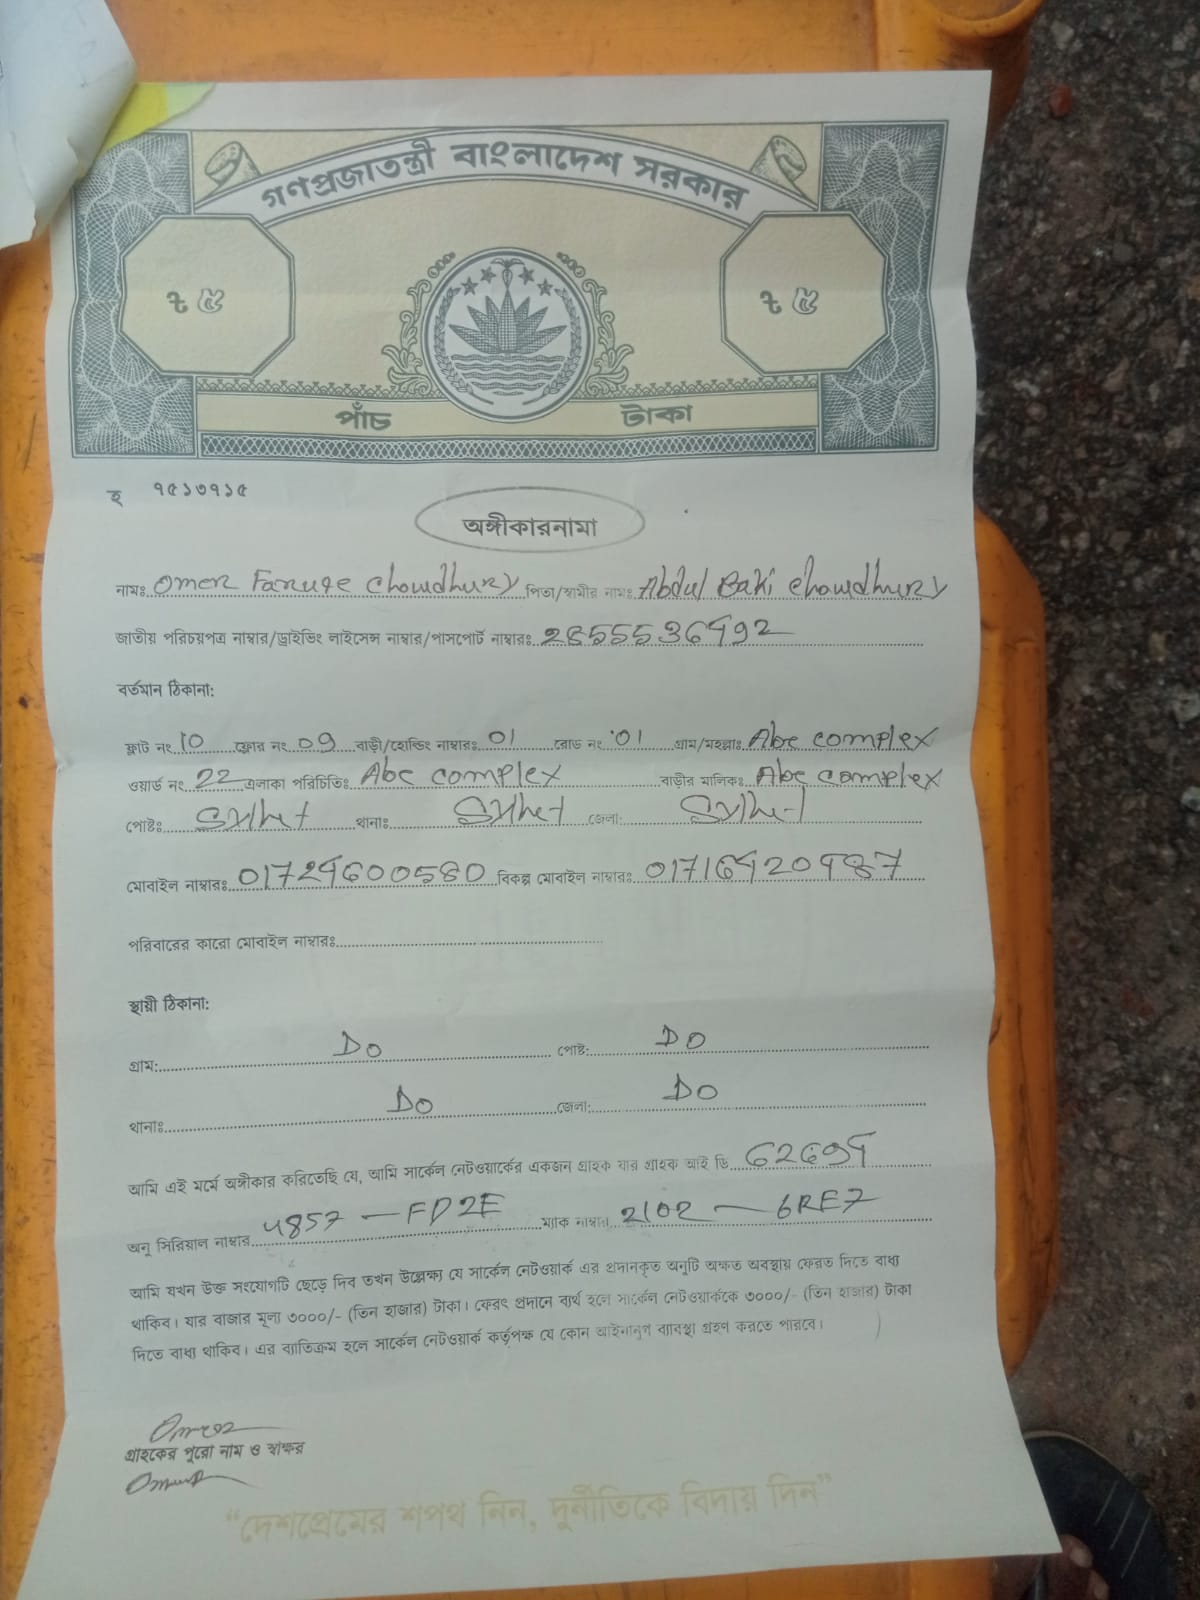 গণপ্রজাতন্ত্রী বাংলাদেশ সরকার
৳ ৫ ৳ ৫
পাঁচ টাকা
হ ৭৫১৩৭১৫
অঙ্গীকারনামা
নামঃ Omer Faruqe Chowdhury পিতা/স্বামীর নামঃ Abdul Baki Chowdhury
জাতীয় পরিচয়পত্র নাম্বার/ড্রাইভিং লাইসেন্স নাম্বার/পাসপোর্ট নাম্বারঃ
বর্তমান ঠিকানা:
ফ্লাট নং 10 ফ্লোর নং 09 বাড়ী/হোল্ডিং নাম্বারঃ 01 রোড নং 01 গ্রাম/মহল্লাঃ Abc complex
ওয়ার্ড নং 22 এলাকা পরিচিতিঃ Abc complex বাড়ীর মালিকঃ Abc complex
পোষ্টঃ Sylhet থানাঃ Sylhet জেলা: Sylhet
মোবাইল নাম্বারঃ বিকল্প মোবাইল নাম্বারঃ
পরিবারের কারো মোবাইল নাম্বারঃ
স্থায়ী ঠিকানা:
গ্রাম: DO পোষ্ট: DO
থানাঃ DO জেলা: DO
আমি এই মর্মে অঙ্গীকার করিতেছি যে, আমি সার্কেল নেটওয়ার্কের একজন গ্রাহক যার গ্রাহক আই ডি
অনু সিরিয়াল নাম্বার 4857 - FD2E ম্যাক নাম্বার 2102 - 6RE7
আমি যখন উক্ত সংযোগটি ছেড়ে দিব তখন উল্লেক্ষ্য যে সার্কেল নেটওয়ার্ক এর প্রদানকৃত অনুটি অক্ষত অবস্থায় ফেরত দিতে বাধ্য
থাকিব। যার বাজার মূল্য ৩০০০/- (তিন হাজার) টাকা। ফেরৎ প্রদানে ব্যর্থ হলে সার্কেল নেটওয়ার্ককে ৩০০০/- (তিন হাজার) টাকা
দিতে বাধ্য থাকিব। এর ব্যাতিক্রম হলে সার্কেল নেটওয়ার্ক কর্তৃপক্ষ যে কোন আইনানুগ ব্যাবস্থা গ্রহণ করতে পারবে।
গ্রাহকের পুরো নাম ও স্বাক্ষর
“দেশপ্রেমের শপথ নিন, দুর্নীতিকে বিদায় দিন”